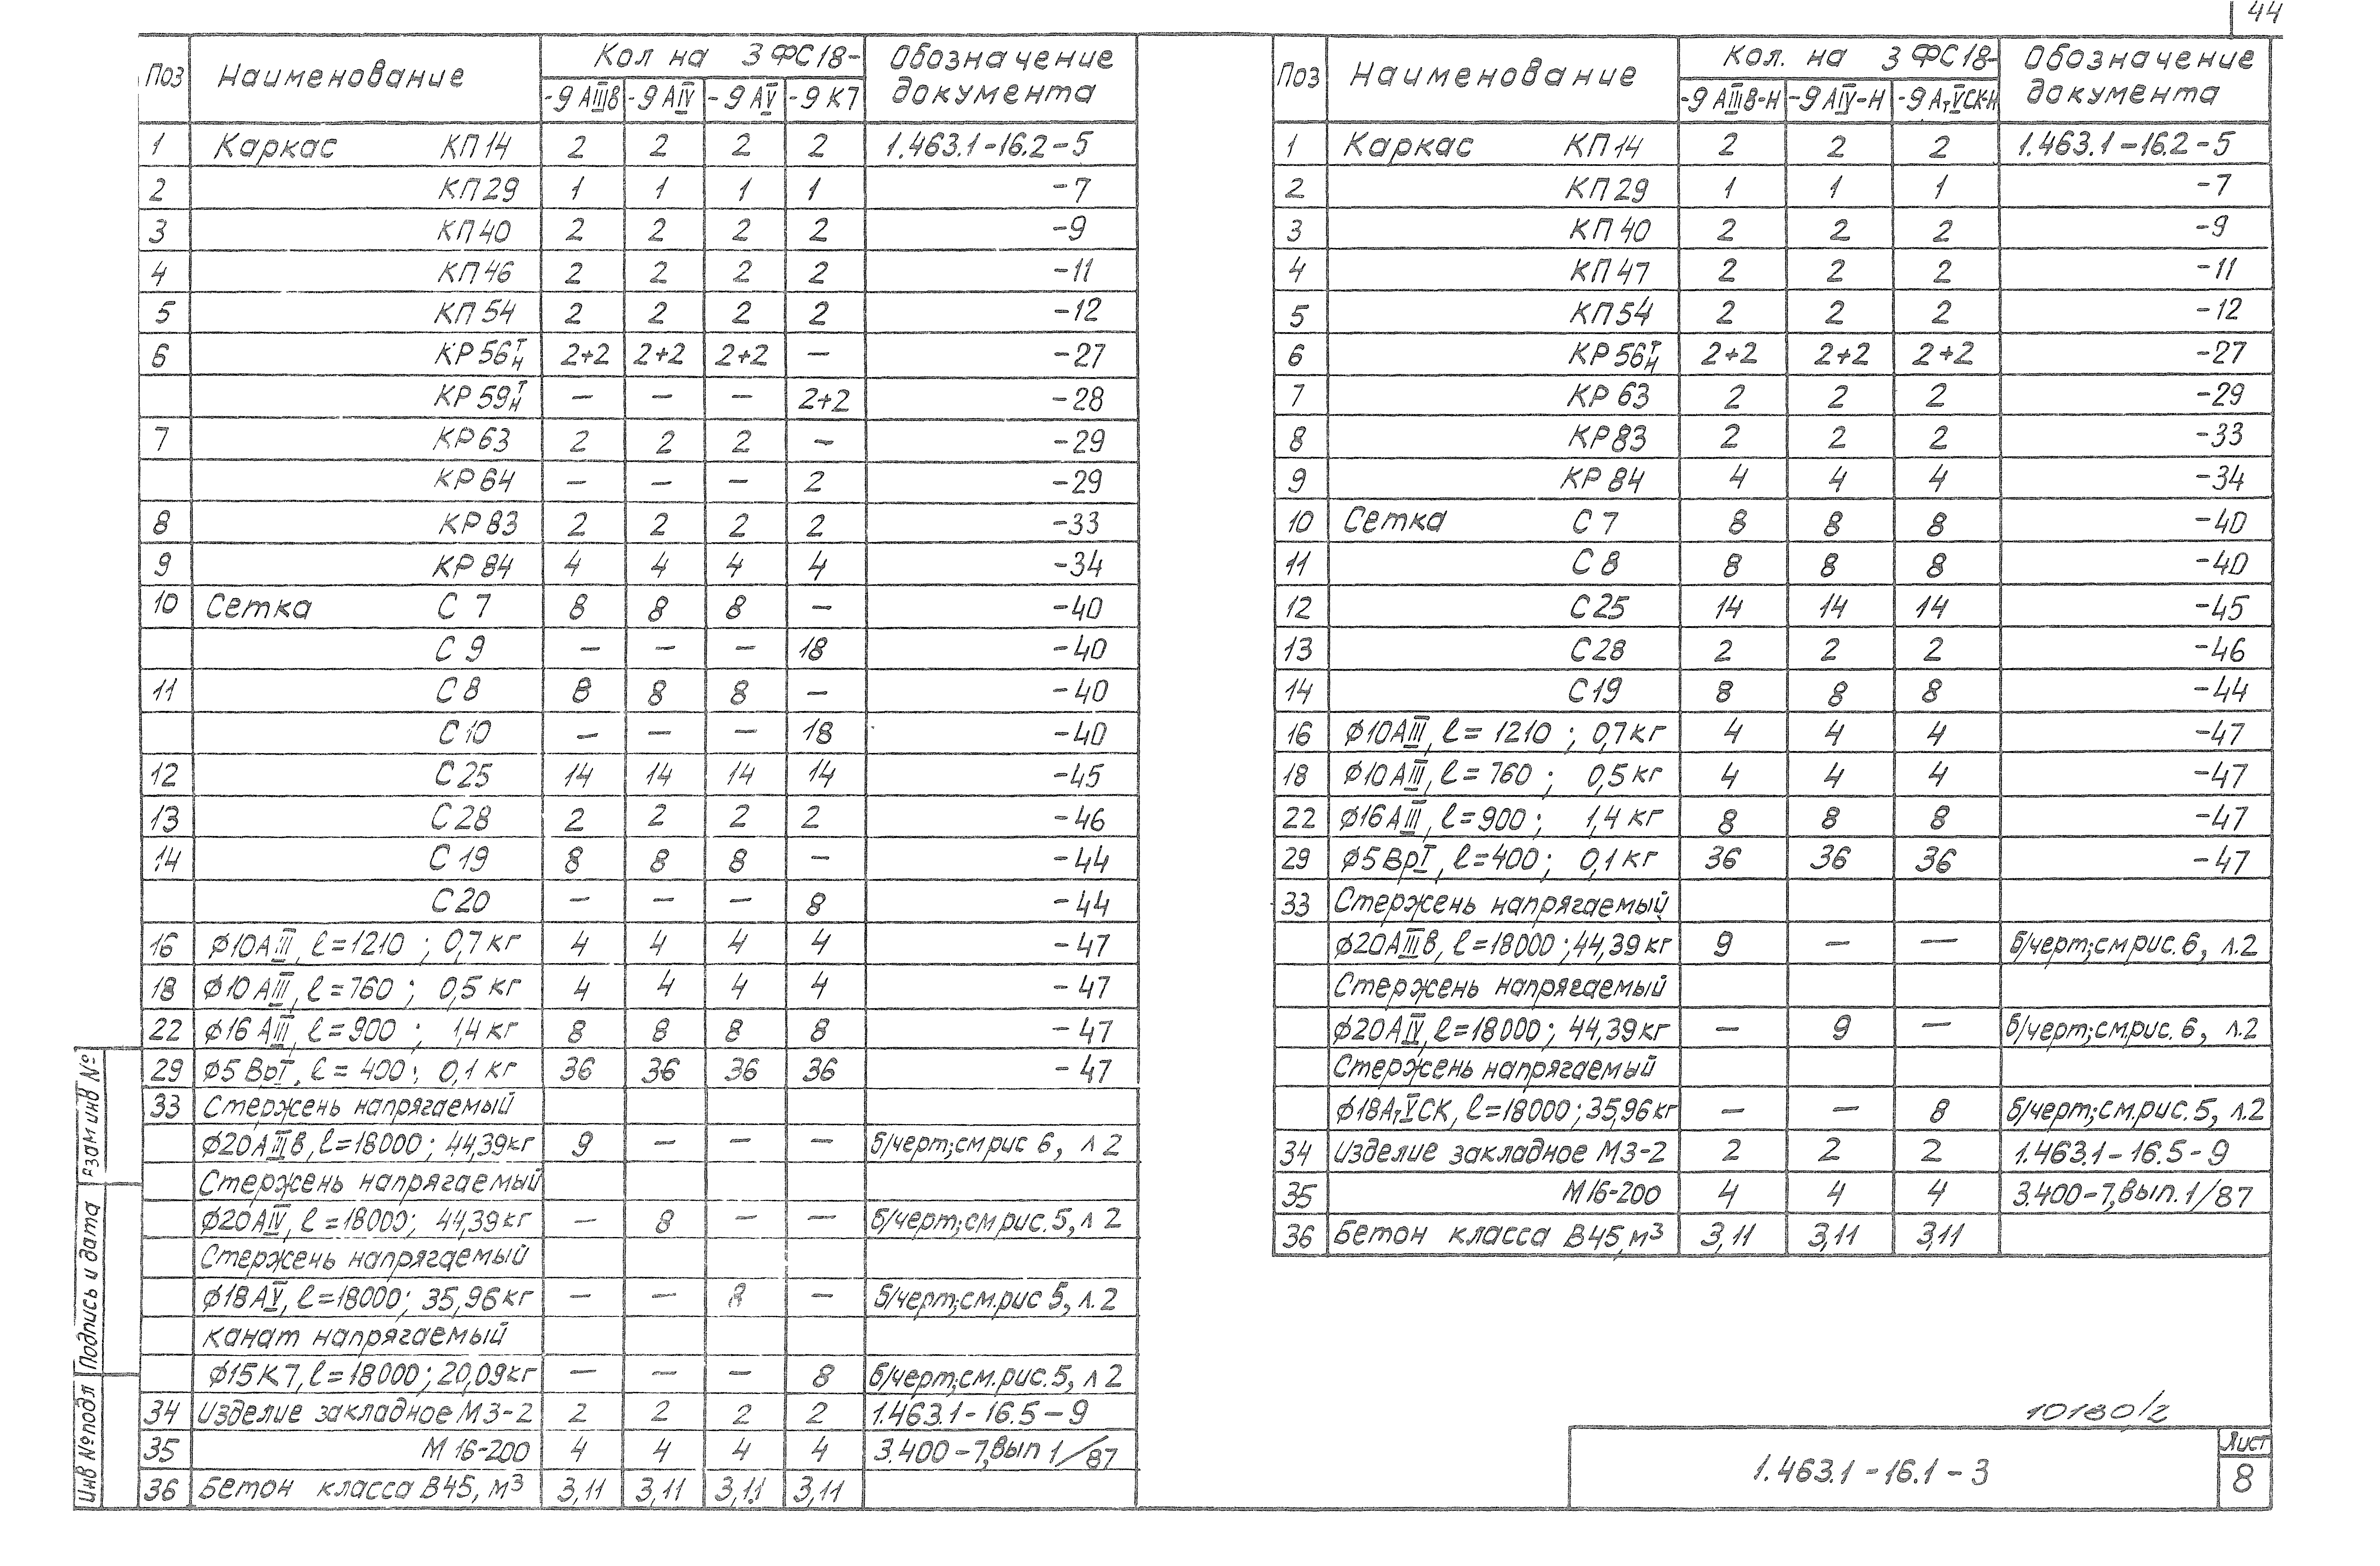 44
Поз Наименование Кол на 3ФС18- Обозначение документа
-9АIIIв -9АIV -9АV -9К7
1 Каркас КП14 2 2 2 2 1.463.1-16.2-5
2 КП29 1 1 1 1 -7
3 КП40 2 2 2 2 -9
4 КП46 2 2 2 2 -11
5 КП54 2 2 2 2 -12
6 КР56ТН 2+2 2+2 2+2 — -27
КР59ТН — — — 2+2 -28
7 КР63 2 2 2 — -29
КР64 — — — 2 -29
8 КР83 2 2 2 2 -33
9 КР84 4 4 4 4 -34
10 Сетка С7 8 8 8 — -40
С9 — — — 18 -40
11 С8 8 8 8 — -40
С10 — — — 18 -40
12 С25 14 14 14 14 -45
13 С28 2 2 2 2 -46
14 С19 8 8 8 — -44
С20 — — — 8 -44
16 ϕ10АIII, ℓ=1210; 0,7кг 4 4 4 4 -47
18 ϕ10АIII, ℓ=760; 0,5кг 4 4 4 4 -47
22 ϕ16АIII, ℓ=900; 1,4кг 8 8 8 8 -47
29 ϕ5ВрI, ℓ=400; 0,1кг 36 36 36 36 -47
33 Стержень напрягаемый
ϕ20АIIIв, ℓ=18000; 44,39кг 9 — — — б/черт; см рис 6, л 2
Стержень напрягаемый
ϕ20АIV, ℓ=18000; 44,39кг — 8 — — б/черт; см рис. 5, л 2
Стержень напрягаемый
ϕ18АV, ℓ=18000; 35,96кг — — 8 — б/черт; см. рис 5, л. 2
Канат напрягаемый
ϕ15К7, ℓ=18000; 20,09кг — — — 8 б/черт; см. рис. 5, л 2
34 Изделие закладное МЗ-2 2 2 2 2 1.463.1-16.5-9
35 М16-200 4 4 4 4 3.400-7, вып 1/87
36 Бетон класса В45, м³ 3,11 3,11 3,11 3,11
Поз Наименование Кол. на 3ФС18- Обозначение документа
-9АIIIв-Н -9АIV-Н -9АтVСК-Н
1 Каркас КП14 2 2 2 1.463.1-16.2-5
2 КП29 1 1 1 -7
3 КП40 2 2 2 -9
4 КП47 2 2 2 -11
5 КП54 2 2 2 -12
6 КР56ТН 2+2 2+2 2+2 -27
7 КР63 2 2 2 -29
8 КР83 2 2 2 -33
9 КР84 4 4 4 -34
10 Сетка С7 8 8 8 -40
11 С8 8 8 8 -40
12 С25 14 14 14 -45
13 С28 2 2 2 -46
14 С19 8 8 8 -44
16 ϕ10АIII, ℓ=1210; 0,7кг 4 4 4 -47
18 ϕ10АIII, ℓ=760; 0,5кг 4 4 4 -47
22 ϕ16АIII, ℓ=900; 1,4кг 8 8 8 -47
29 ϕ5ВрI, ℓ=400; 0,1кг 36 36 36 -47
33 Стержень напрягаемый
ϕ20АIIIв, ℓ=18000; 44,39кг 9 — — б/черт; см рис. 6, л. 2
Стержень напрягаемый
ϕ20АIV, ℓ=18000; 44,39кг — 9 — б/черт; см. рис. 6, л. 2
Стержень напрягаемый
ϕ18АтVСК, ℓ=18000; 35,96кг — — 8 б/черт; см. рис. 5, л. 2
34 Изделие закладное МЗ-2 2 2 2 1.463.1-16.5-9
35 М16-200 4 4 4 3.400-7, вып. 1/87
36 Бетон класса В45, м³ 3,11 3,11 3,11
Взам инв №
Подпись и дата
Инв № подл
10180/2
1.463.1-16.1-3
Лист
8